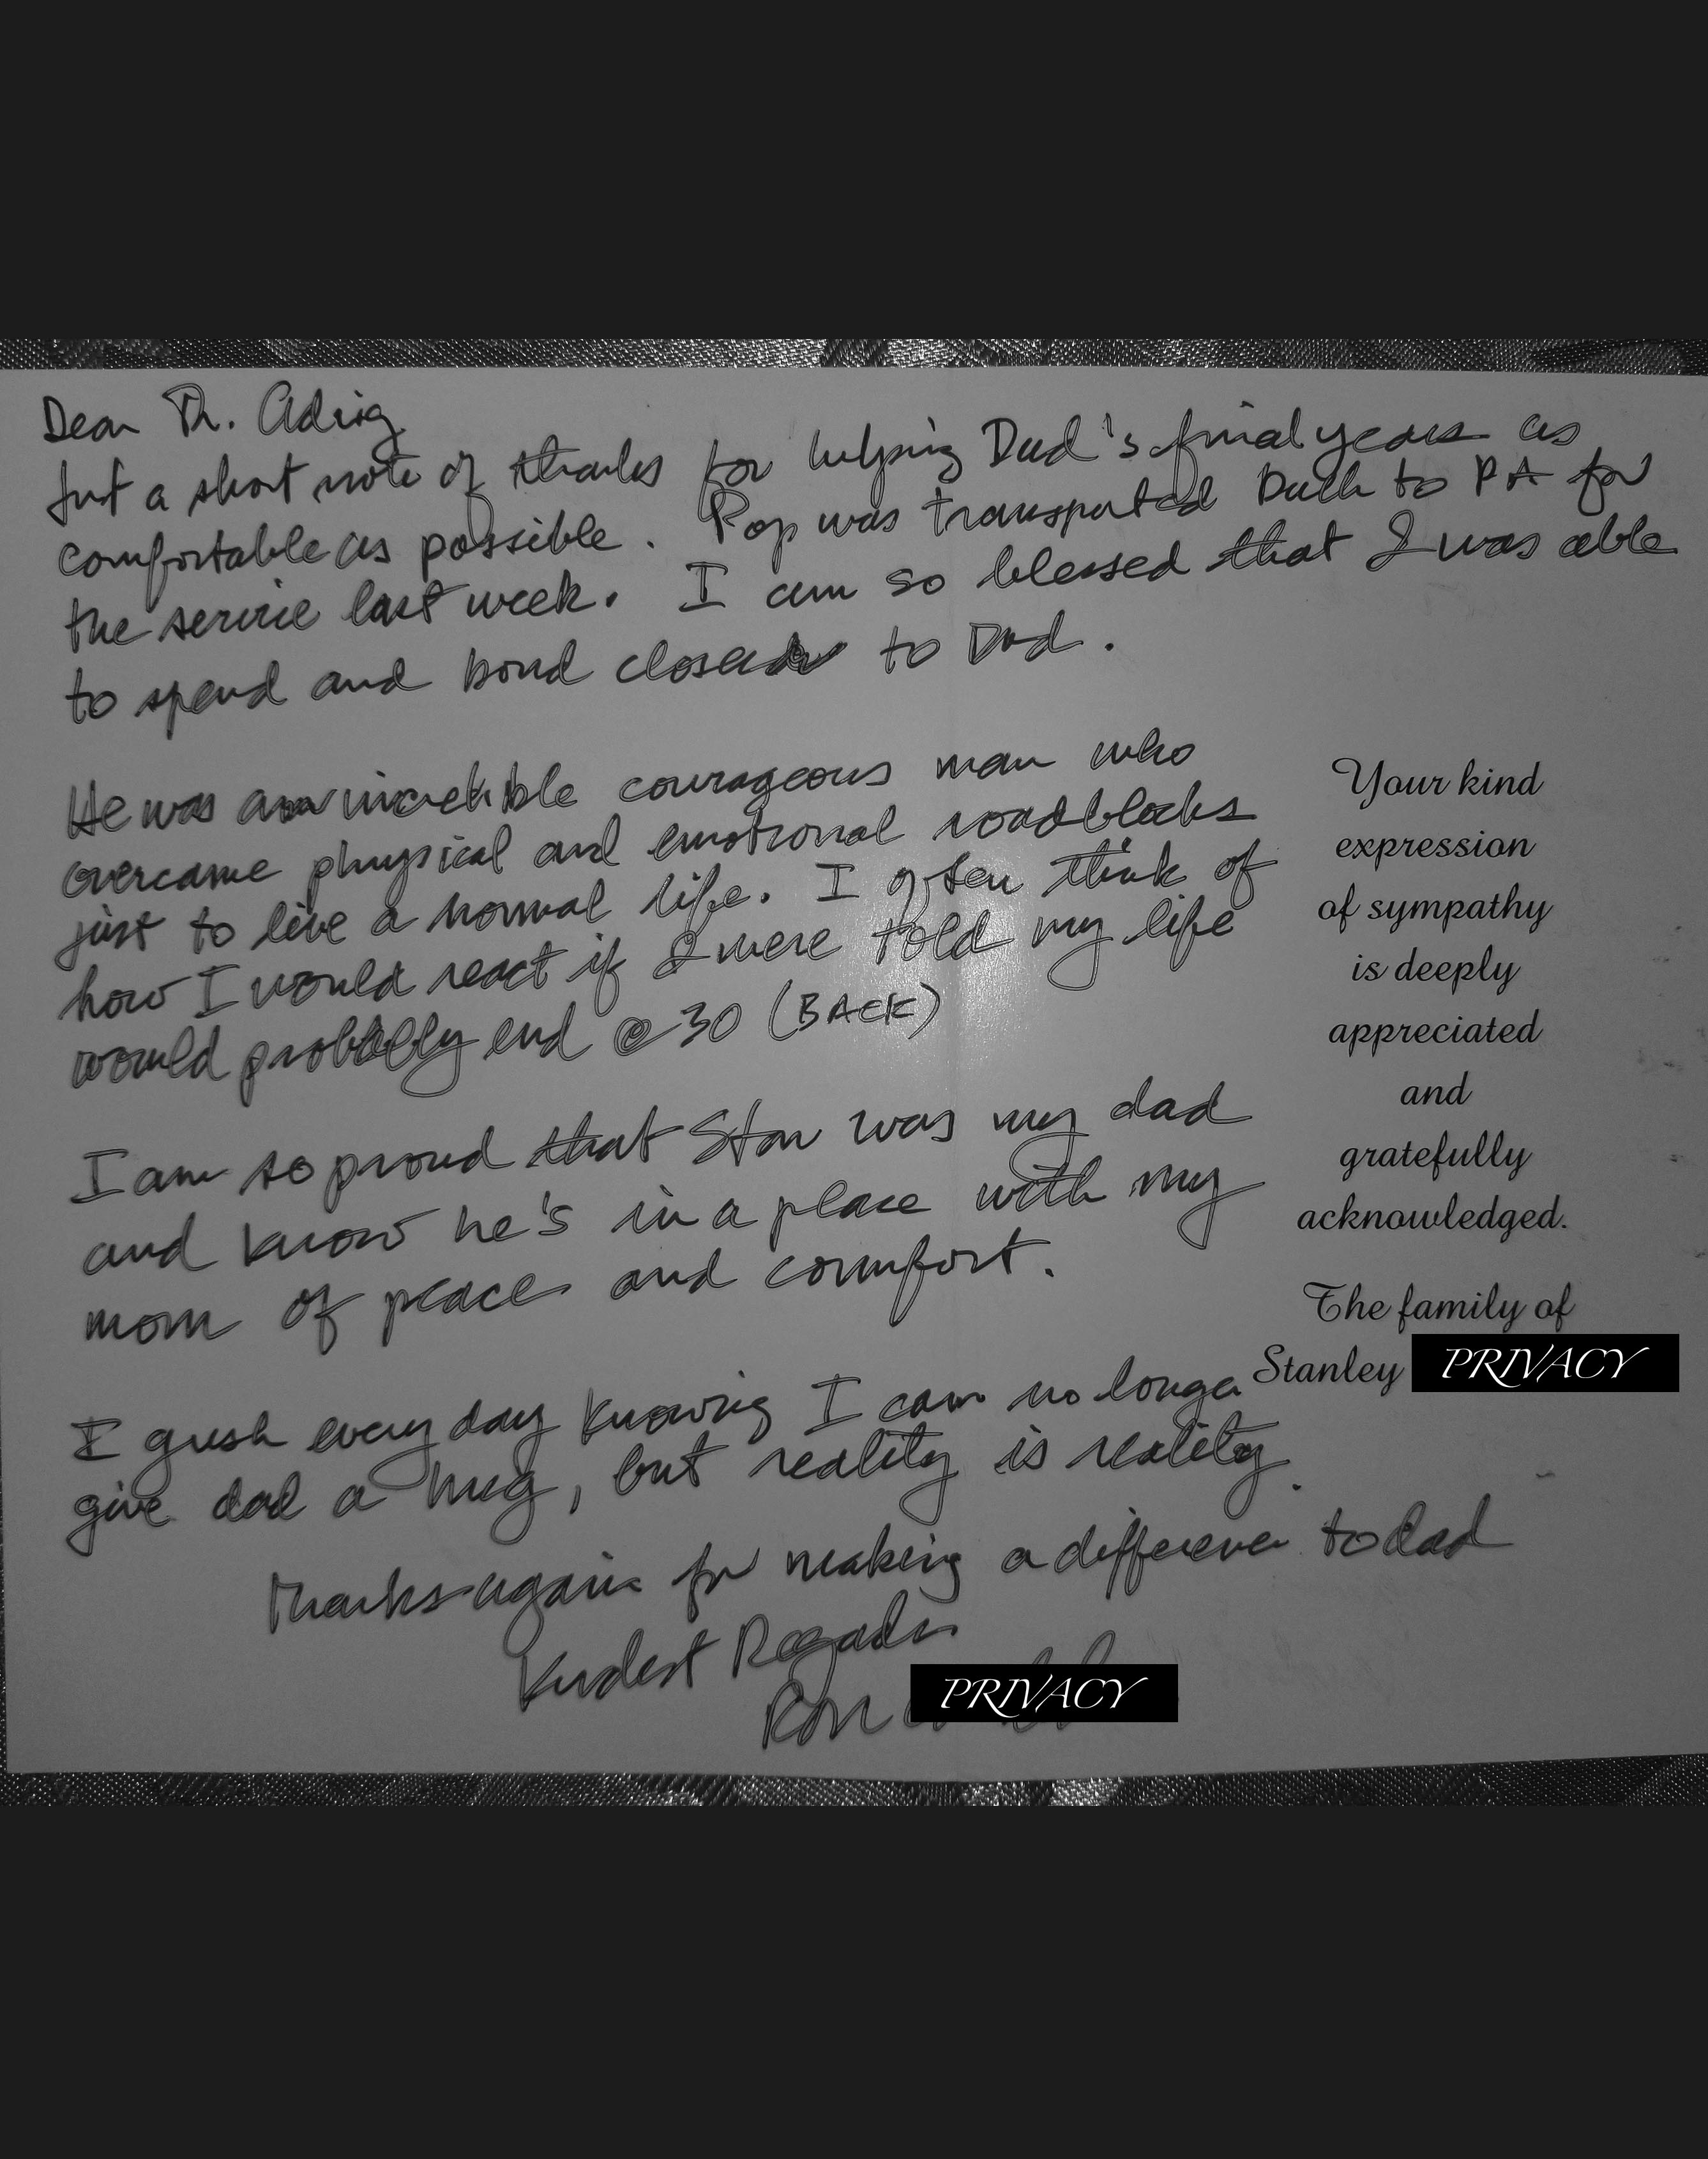 Dear Dr. Adrig
Just a short note of thanks for helping Dad's final years as
comfortable as possible. Pop was transported Back to PA for
the service last week. I am so blessed that I was able
to spend and bond closer to Dad.
He was an incredible courageous man who
overcame physical and emotional roadblocks
just to live a normal life. I often think of
how I would react if I were told my life
would probably end @ 30 (BACK)
I am so proud that Stan was my dad
and know he's in a place with my
mom of peace and comfort.
I gush every day knowing I can no longer
give dad a hug, but reality is reality.
Thanks again for making a difference to dad
Kindest Regards
Ron
Your kind
expression
of sympathy
is deeply
appreciated
and
gratefully
acknowledged.
The family of
Stanley PRIVACY
PRIVACY